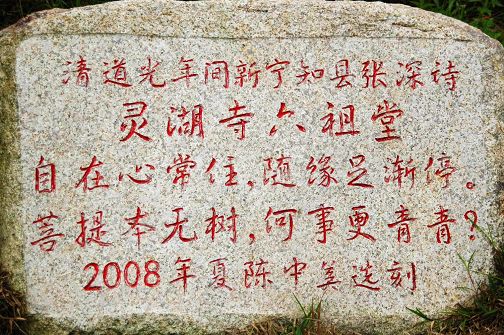 清道光年间新宁知县张深诗
灵湖寺六祖堂
自在心常住,随缘足渐停。
菩提本无树,何事更青青?
2008年夏陈中美选刻